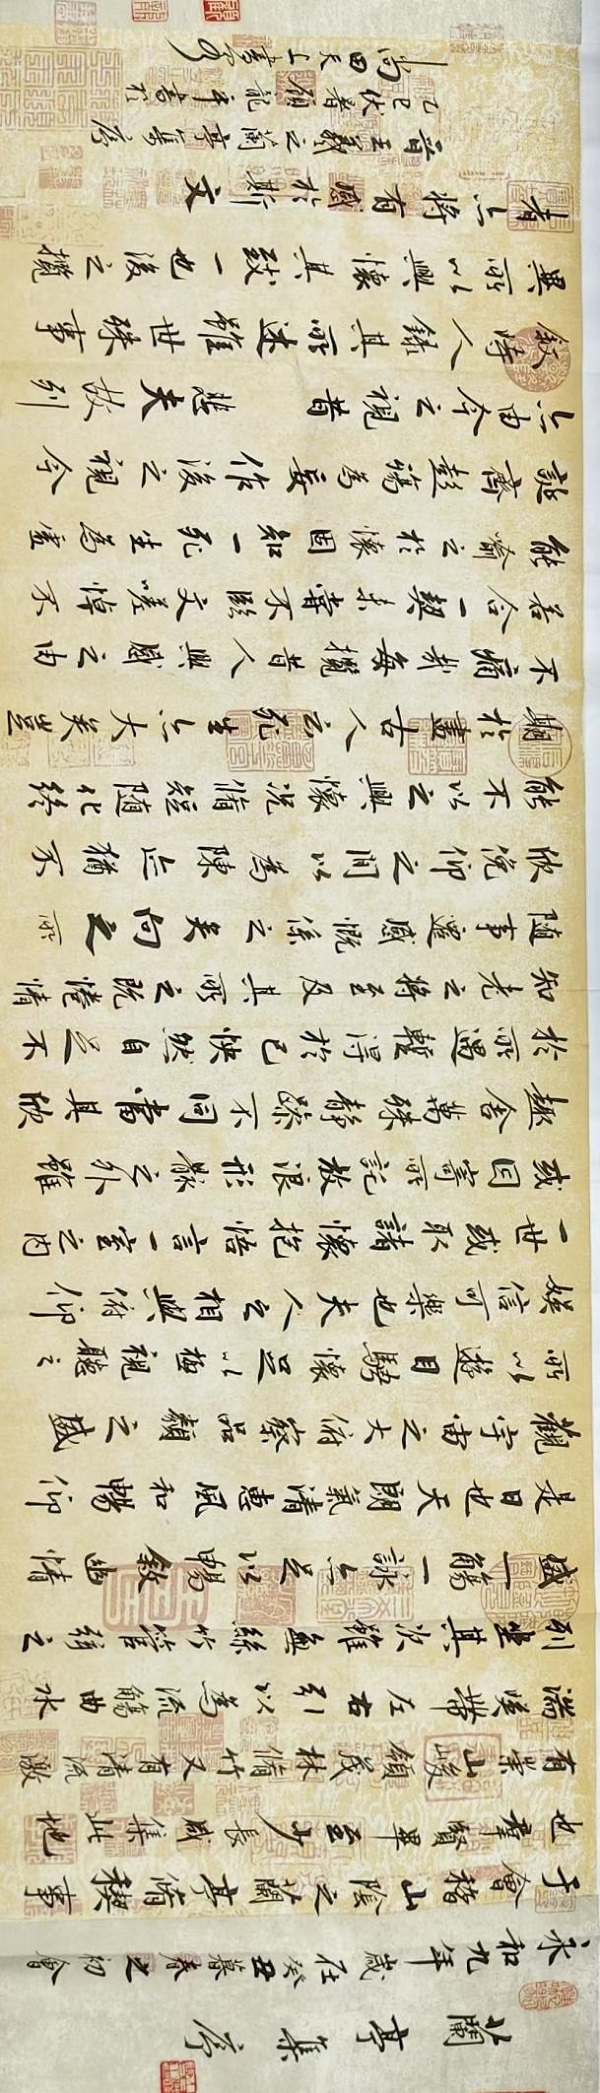 蘭亭集序
永和九年歲在癸丑暮春之初會
于會稽山陰之蘭亭脩稧事
也群賢畢至少長咸集此地
有崇山峻領茂林脩竹又有清流激
湍暎帶左右引以為流觴曲水
列坐其次雖無絲竹管弦之
盛一觴一詠亦足以暢敘幽情
是日也天朗氣清惠風和暢仰
觀宇宙之大俯察品類之盛
所以遊目騁懷足以極視聽之
娛信可樂也夫人之相與俯仰
一世或取諸懷抱悟言一室之內
或因寄所託放浪形骸之外雖
趣舍萬殊靜躁不同當其欣
於所遇暫得於己快然自足不
知老之將至及其所之既惓情
隨事遷感慨係之矣向之所
欣俛仰之間以為陳迹猶不
能不以之興懷況脩短隨化終
期於盡古人云死生亦大矣豈
不痛哉每攬昔人興感之由
若合一契未嘗不臨文嗟悼不
能喻之於懷固知一死生為虛
誕齊彭殤為妄作後之視今
亦由今之視昔悲夫故列
敘時人錄其所述雖世殊事
異所以興懷其致一也後之攬
者亦將有感於斯文
晉王羲之蘭亭集序
乙巳伏暑顧龍平書於
尚田天上書